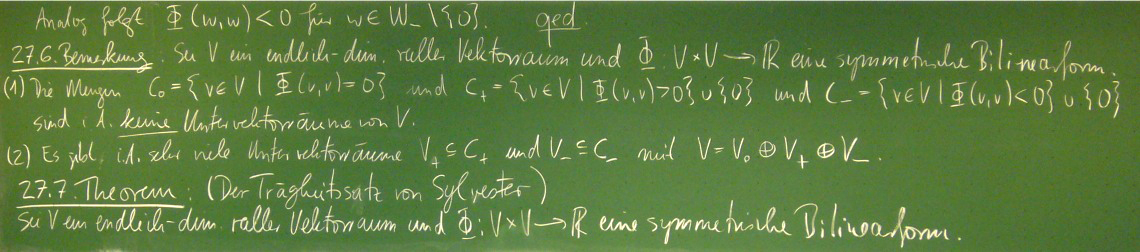 Analog folgt Φ(w,w) < 0 für w ∈ W_ \ {0}. qed.
27.6. Bemerkung. Sei V ein endlich-dim. reeller Vektorraum und Φ : V × V → ℝ eine symmetrische Bilinearform.
(1) Die Mengen C₀ = {v ∈ V | Φ(v,v) = 0} und C₊ = {v ∈ V | Φ(v,v) > 0} ∪ {0} und C₋ = {v ∈ V | Φ(v,v) < 0} ∪ {0}
sind i.A. keine Untervektorräume von V.
(2) Es gibt i.A. sehr viele Untervektorräume V₊ ⊆ C₊ und V₋ ⊆ C₋ mit V = V₀ ⊕ V₊ ⊕ V₋.
27.7. Theorem: (Der Trägheitssatz von Sylvester)
Sei V ein endlich-dim. reeller Vektorraum und Φ : V × V → ℝ eine symmetrische Bilinearform.